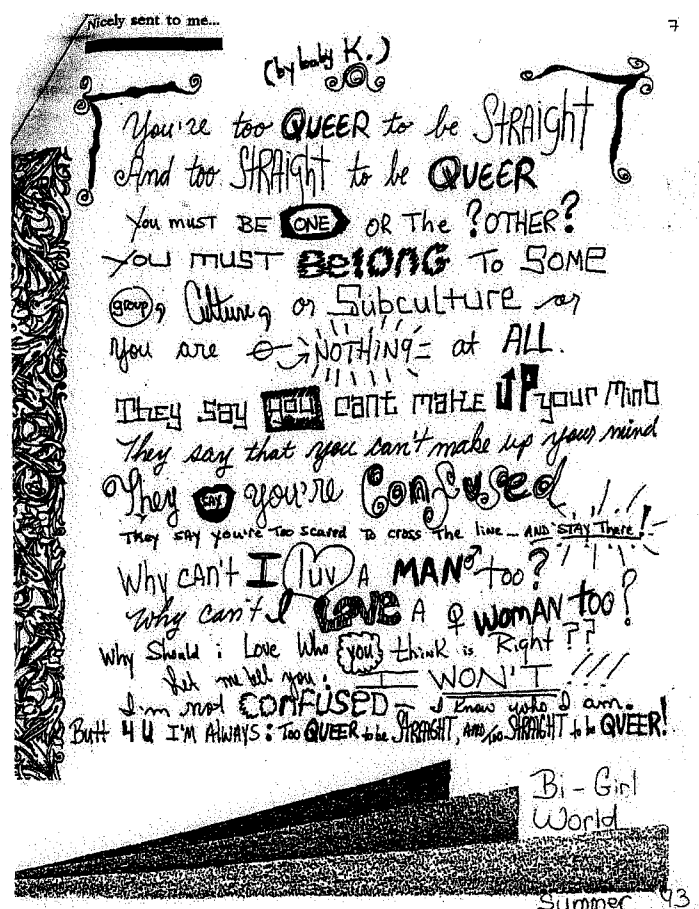 Nicely sent to me...
7
(by baby K.)
You're too QUEER to be STRAIGHT
And too STRAIGHT to be QUEER
You must BE ONE OR The ?OTHER?
YOU MUST BELONG TO SOME
group, Culture, or Subculture or
You are NOTHING at ALL.
They say you can't make UP your mind
They say that you can't make up your mind
They SAY you're Confused
They say you're too scared to cross the line... AND STAY There!
Why can't I luv A MAN♂ too?
Why can't I LOVE A ♀ WOMAN too?
Why Should i Love Who you think is Right??
Let me tell you: I WON'T!!!
I'm not CONFUSED — I know who I am.
Butt 4 U I'M ALWAYS: Too QUEER to be STRAIGHT, AND too STRAIGHT to be QUEER!
Bi-Girl
World
Summer 93